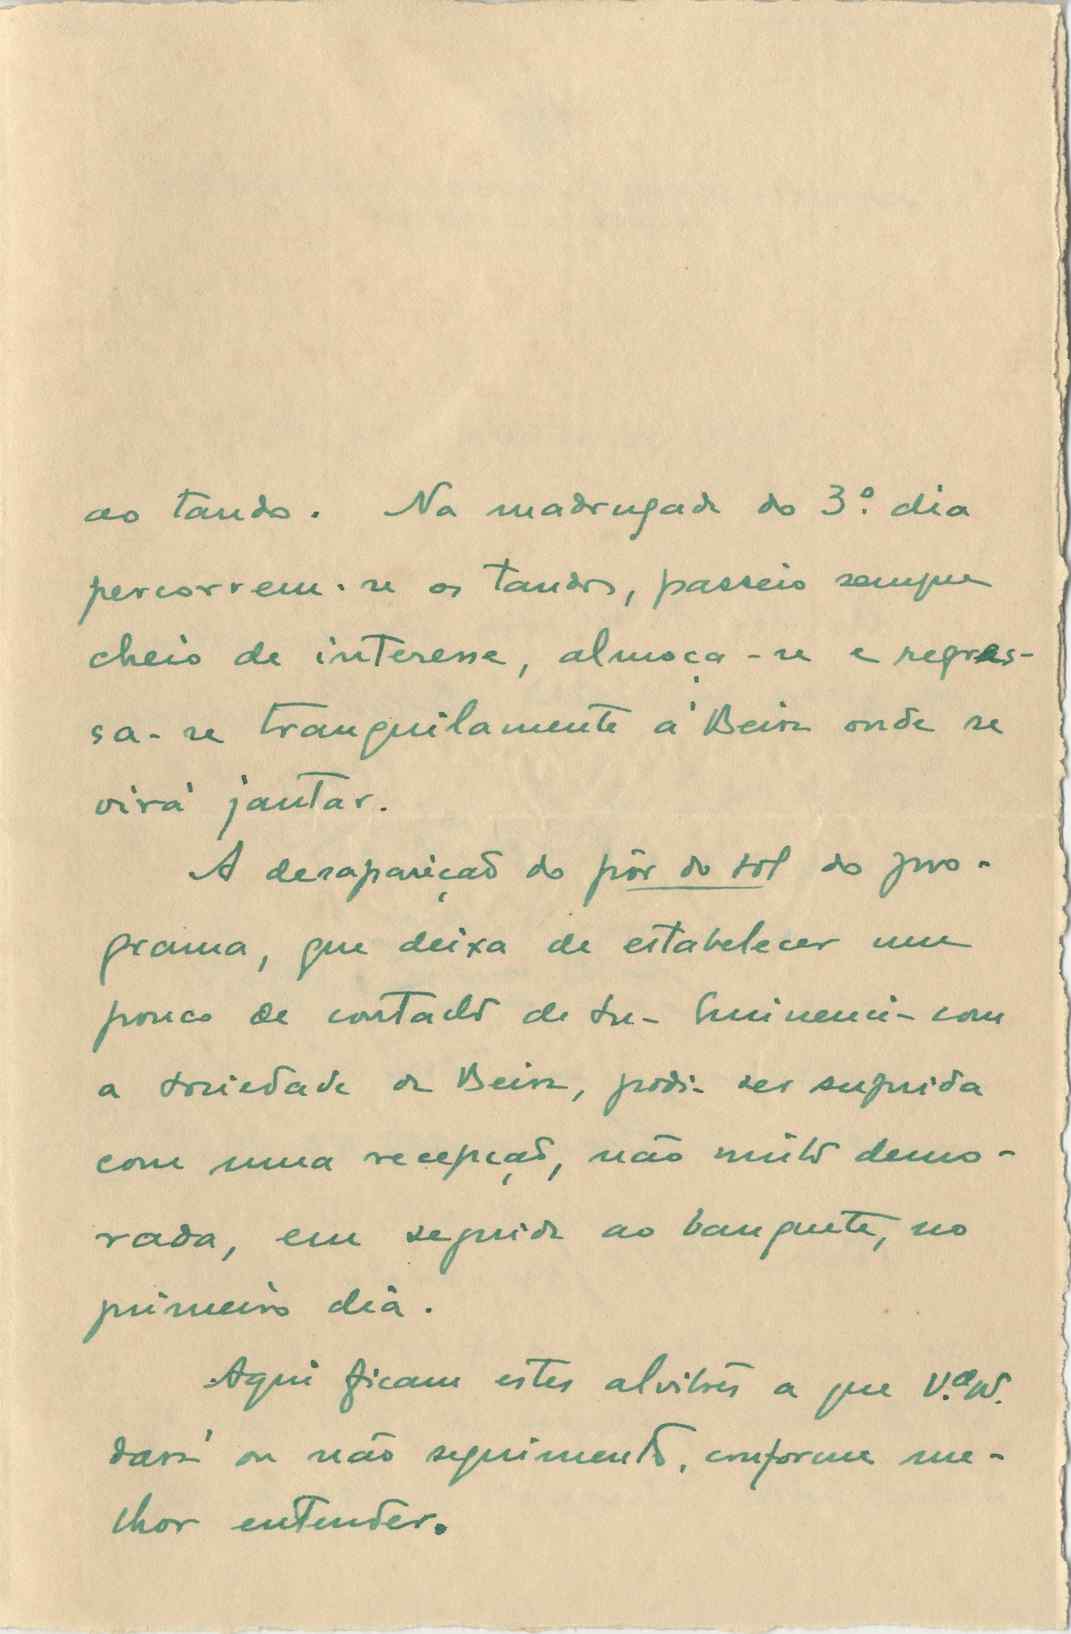 ao tando. Na madrugada do 3.º dia
percorrem-se os tandos, passeio sempre
cheio de interesse, almoça-se e regres-
sa-se tranquilamente á Beira onde se
virá jantar.
A desaparição do pôr do sol do pro-
grama, que deixa de estabelecer um
pouco de contacto de Sua Eminencia com
a sociedade da Beira, podia ser suprida
com uma recepção, não muito demo-
rada, em seguida ao banquete, no
primeiro dia.
Aqui ficam estes alvitres a que V.ª
dará ou não seguimento, conforme me-
lhor entender.